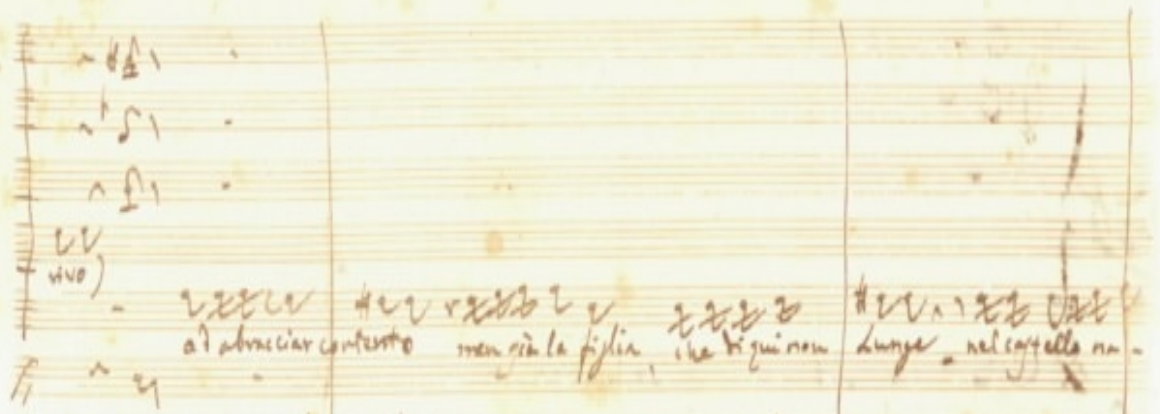 vivo)
ad abracciar contento men già la figlia, che di qui non Lunge nel castello na-